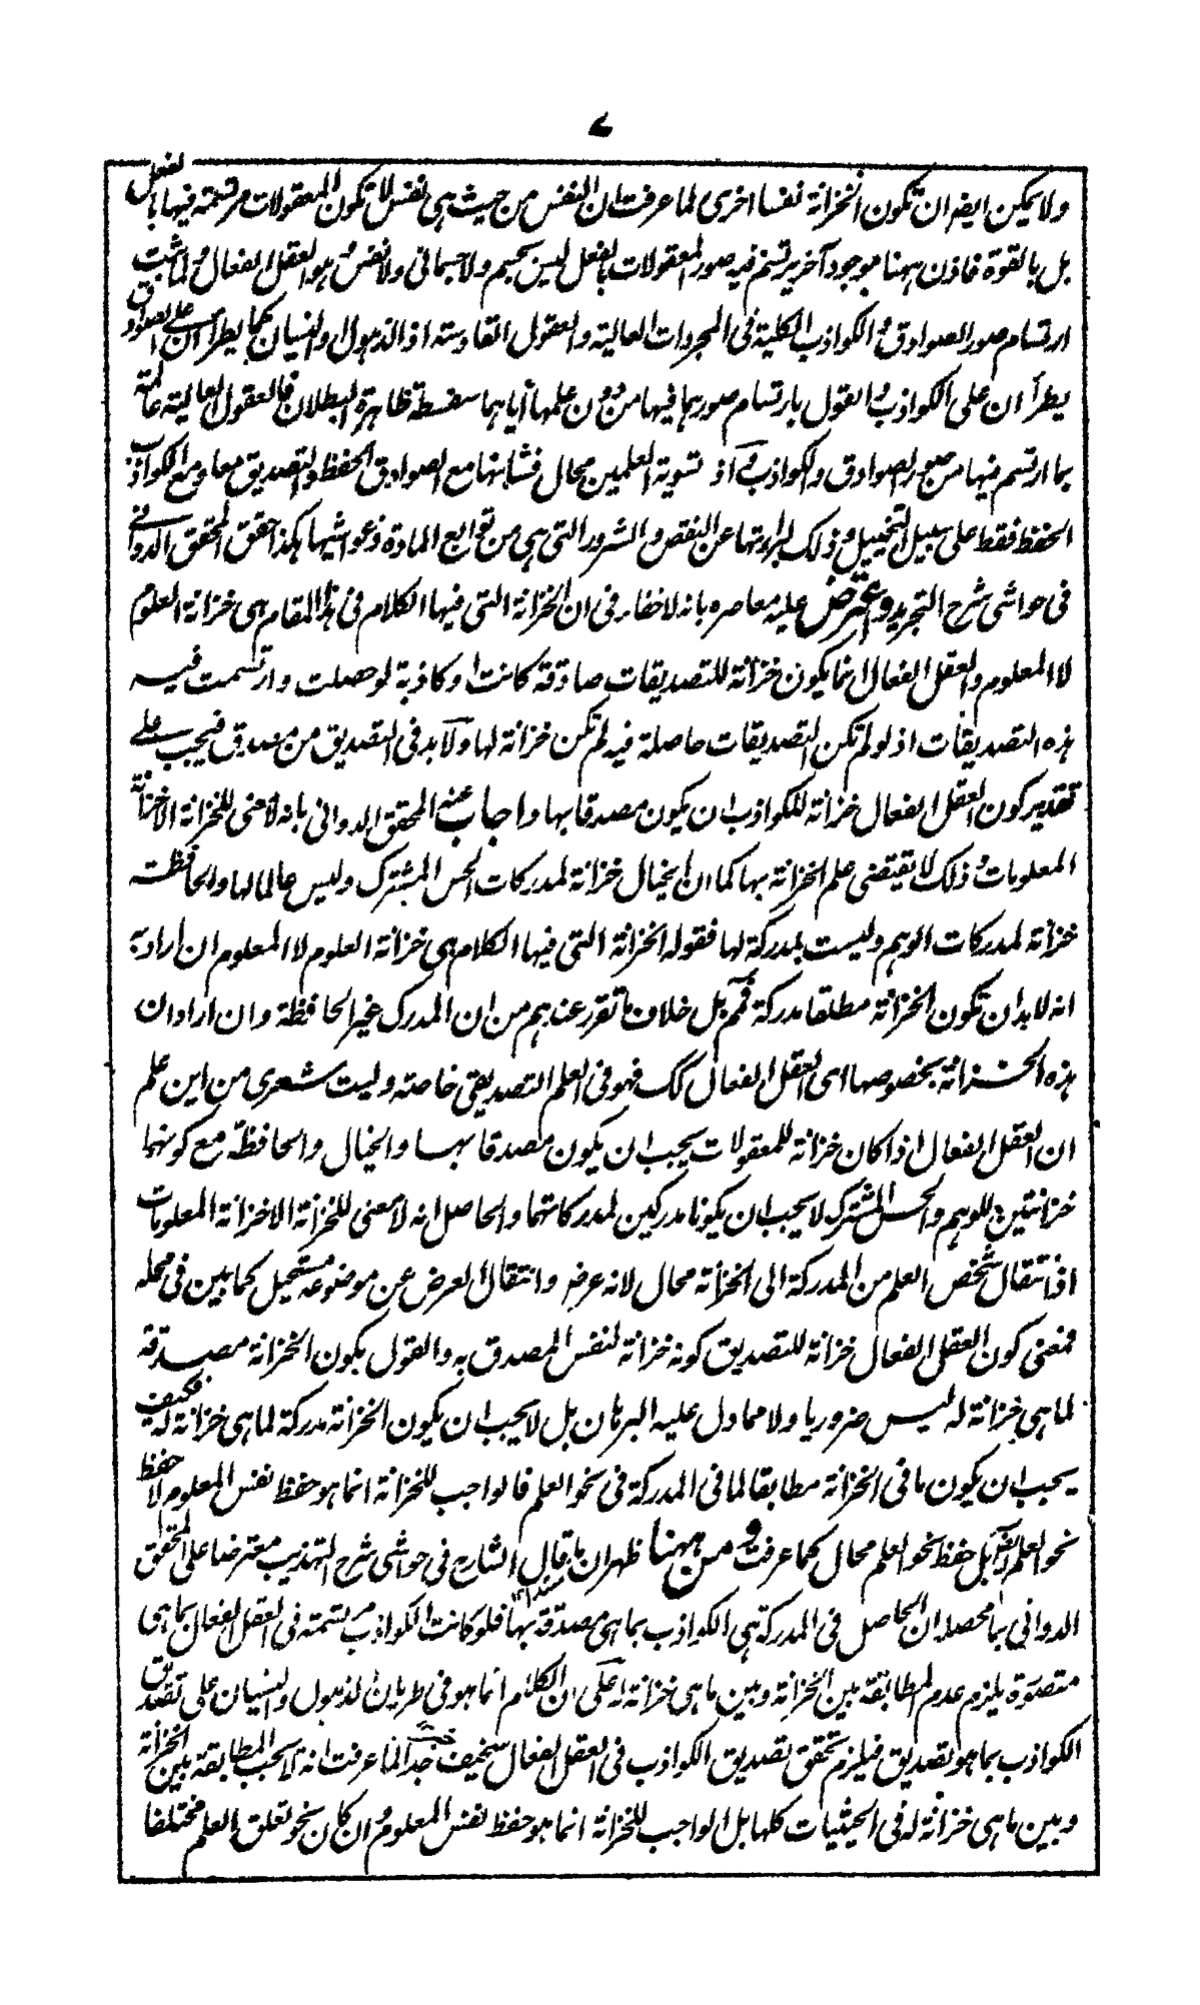 ٧
ولا يمكن ايضه ان تكون الخزانة نفسا اخرى لما عرفت ان النفس من حيث هى نفس لا تكون المعقولات مرتسمة فيها بالفعل
بل بالقوة فاذن ههنا موجود آخر يرتسم فيه صور المعقولات بالفعل ليس بجسم ولا جسمانى ولا نفس وهو العقل الفعال ولما ثبت
ارتسام صور الصوادق والكواذب الكلية فى المجردات العالية والعقول القادسة اذ الذهول والنسيان كما يطرآن على الصوادق
يطرآن على الكواذب والقول بارتسام صورها فيها من دون علمها اياها سفسطة ظاهرة البطلان فالعقول العالية عالمة
بما ارتسم فيها من صور الصوادق والكواذب اذ تسوية العلمين محال فشانها مع الصوادق الحفظ والتصديق معا ومع الكواذب
الحفظ فقط على سبيل التخييل وذلك لبراءتها عن النقص والشرور التى هى من توابع المادة وغواشيها هكذا حقق المحقق الدوانى
فى حواشى شرح التجريد واعترض عليه معاصره بانه لا خفاء فى ان الخزانة التى فيها الكلام فى هذا المقام هى خزانة العلوم
لا المعلوم والعقل الفعال انما يكون خزانة للتصديقات صادقة كانت او كاذبة لو حصلت وارتسمت فيه
هذه التصديقات اذ لو لم تكن التصديقات حاصلة فيه لم تكن خزانة لها ولا بد فى التصديق من مصدق فيجب على
تقدير كون العقل الفعال خزانة للكواذب ان يكون مصدقا بها واجاب عنه المحقق الدوانى بانه لا معنى للخزانة الا خزانة
المعلومات وذلك لا يقتضى علم الخزانة بها كما ان الخيال خزانة لمدركات الحس المشترك وليس عالما لها والحافظة
خزانة لمدركات الوهم وليست بمدركة لها فقوله الخزانة التى فيها الكلام هى خزانة العلوم لا المعلوم ان اراد به
انه لا بد ان تكون الخزانة مطلقا مدركة فمم بل خلاف ما تقرر عندهم من ان المدرك غير الحافظة وان اراد ان
هذه الخزانة بخصوصها اى العقل الفعال كك فهو فى العلم التصديقى خاصة وليت شعرى من اين علم
ان العقل الفعال اذا كان خزانة للمعقولات يجب ان يكون مصدقا بها والخيال والحافظة مع كونهما
خزانتين للوهم والحس المشترك لا يجب ان يكونا مدركين لمدركاتهما والحاصل انه لا معنى للخزانة الا خزانة المعلومات
اذ انتقال شخص العلم من المدركة الى الخزانة محال لانه عرض وانتقال العرض عن موضوعه مستحيل كما بين فى محله
فمعنى كون العقل الفعال خزانة للتصديق كونه خزانة لنفس المصدق به والقول بكون الخزانة مصدقة
لما هى خزانة له ليس ضروريا ولا مما دل عليه البرهان بل لا يجب ان يكون الخزانة مدركة لما هى خزانة له فكيف
يجب ان يكون ما فى الخزانة مطابقا لما فى المدركة فى نحو العلم فالواجب للخزانة انما هو حفظ نفس المعلوم لا حفظ
نحو العلم بل حفظ نحو العلم محال كما عرفت ومن ههنا ظهر ان ما قال الشارح فى حواشى شرح التهذيب معترضا على المحقق
الدوانى بما محصله ان الحاصل فى المدركة هى الكواذب بما هى مصدقة بها فلو كانت الكواذب مرتسمة فى العقل الفعال بما هى
متصورة يلزم عدم المطابقة بين الخزانة وبين ما هى خزانة له على ان الكلام انما هو فى طريان الذهول والنسيان على تصديق
الكواذب بما هو تصديق فيلزم تحقق تصديق الكواذب فى العقل الفعال سخيف جدا لما عرفت انه لا يجب المطابقة بين الخزانة
وبين ما هى خزانة له فى الحيثيات كلها بل الواجب للخزانة انما هو حفظ نفس المعلوم وان كان نحو تعلق العلم مختلفا